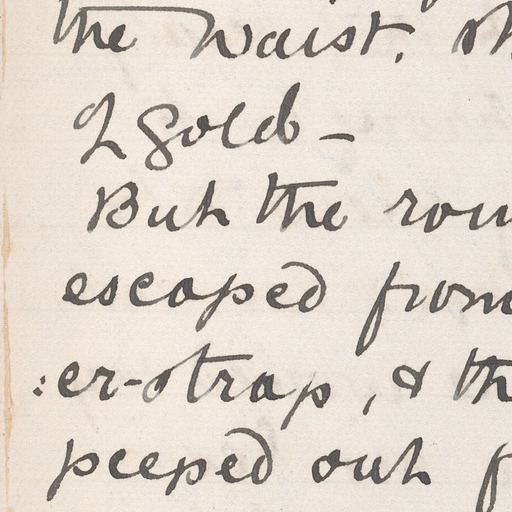 the waist, 
of gold –
But the
escaped from
:er-strap, & th
peeped out f